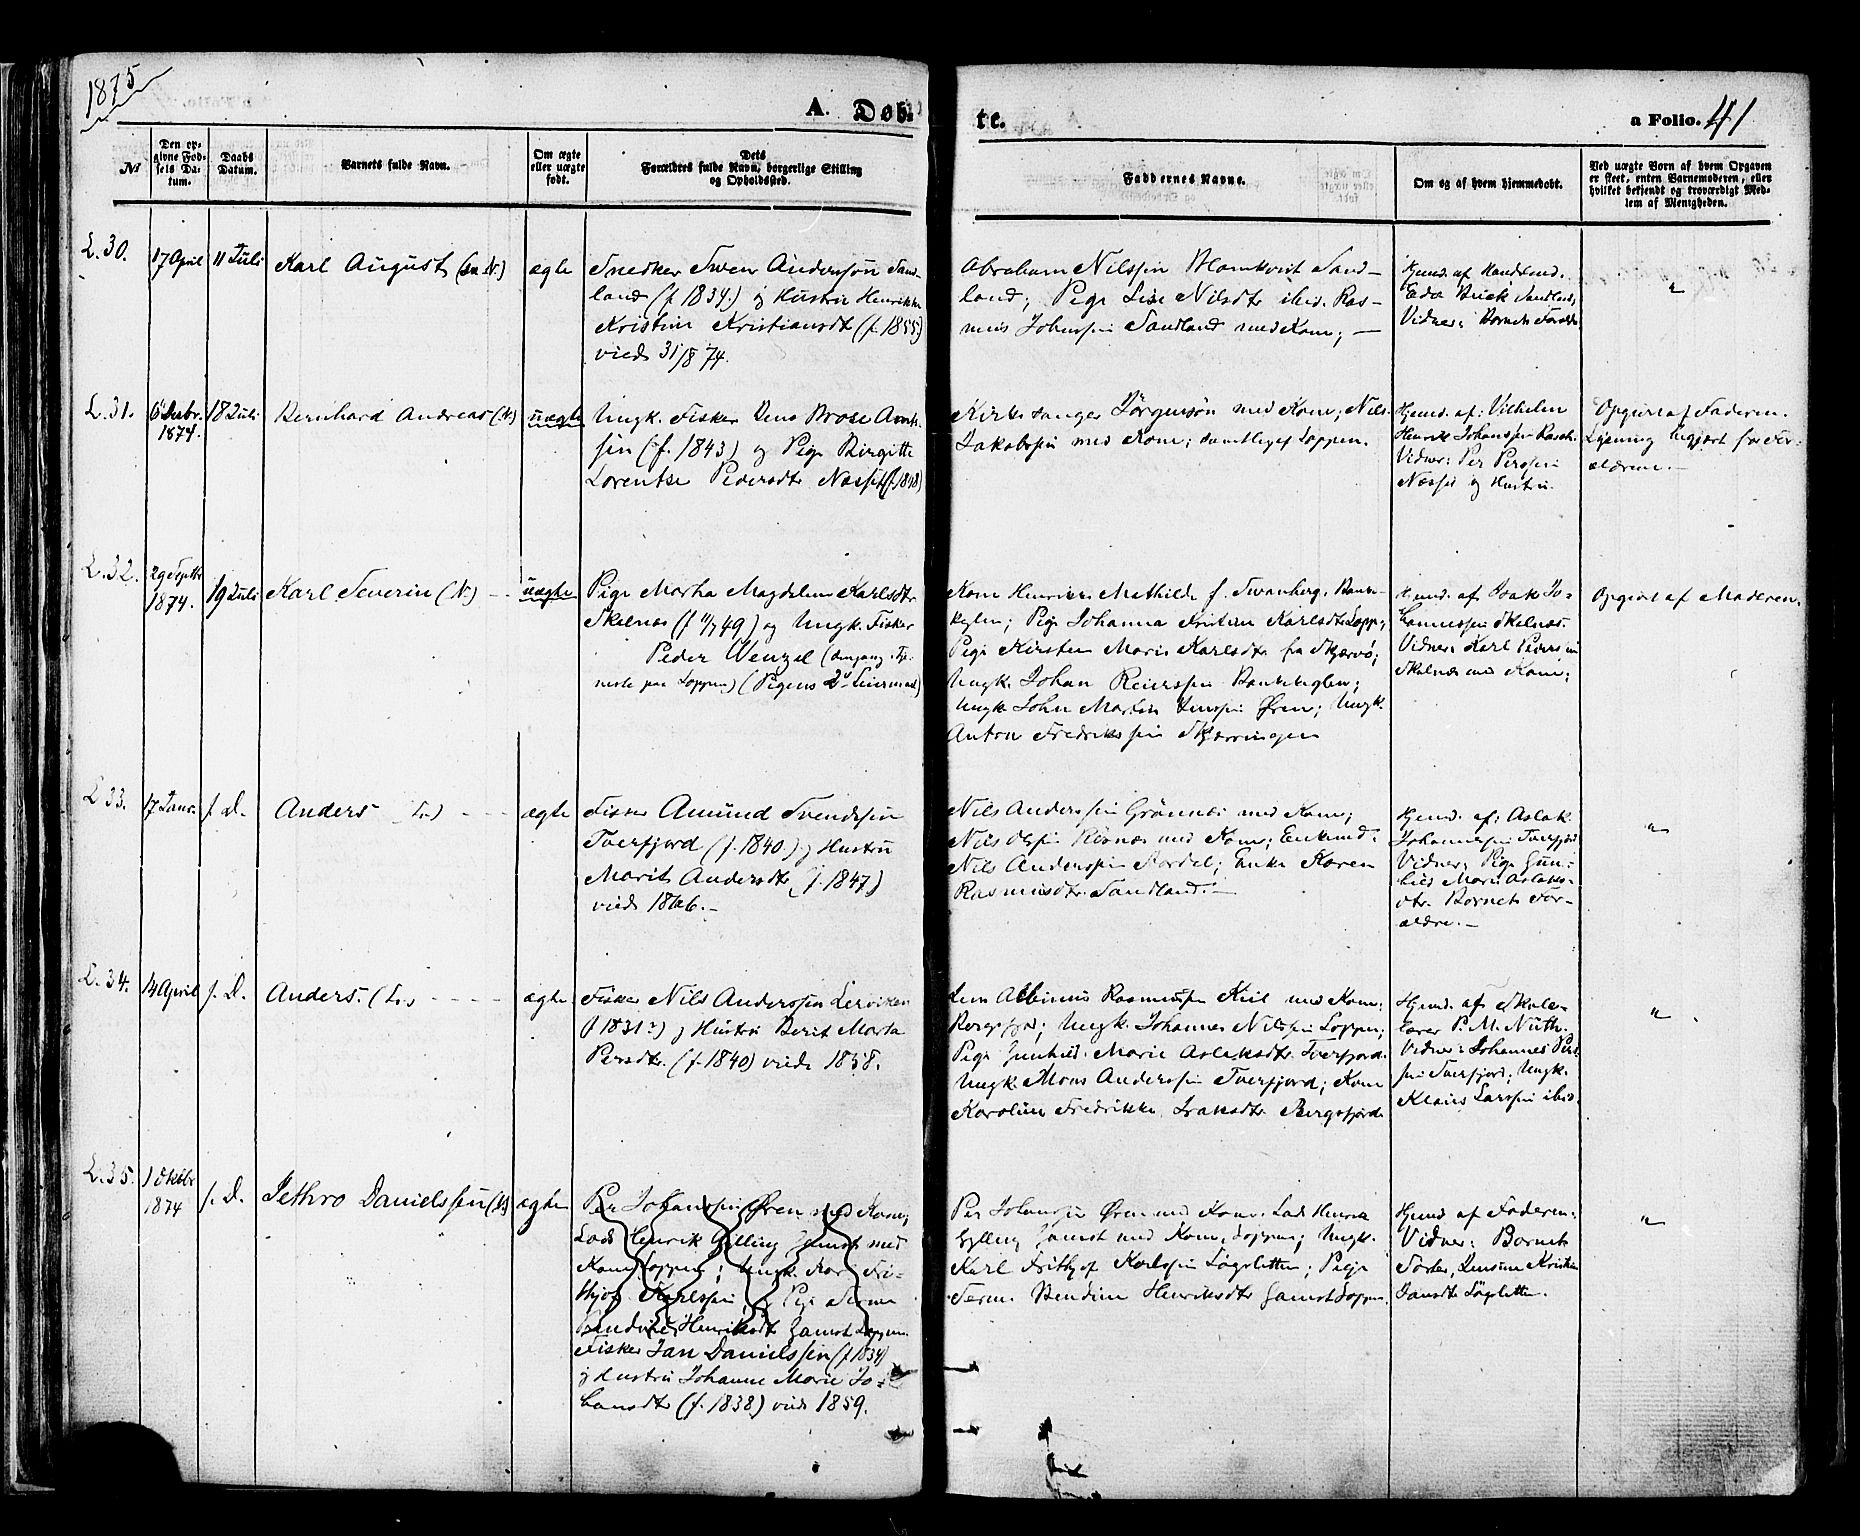 1875
A. Døb-
te.
a Folio. 41
№
Den op-
givne Fød-
sels Da-
tum.
Daabs
Datum.
Barnets fulde Navn.
Om ægte
eller uægte
født.
Dets
Forældres fulde Navn, borgerlige Stilling
og Opholdssted.
Faddernes Navne.
Om og af hvem hjemmedøbt.
Ved uægte Børn af hvem Opgaven
er skeet, enten Barnemoderen, eller
hvilket bekjendt og troværdigt Med-
lem af Menigheden.
L.30.
17 April
11 Juli
Karl August
ægte
Snedker Swen Anderssøn Sand-
land (f. 1834.) og Hustru Henrikke
Kristine Kristiansdt (f. 1855)
viede 31/8 74.
Abraham Nilssøn Blomkvist Sand-
land; Pige Lise Nilsdtr ibid. Ras-
mus Johnssen Sandland med Kone; —
Hjemd. af Handelsmd.
Buck Sandland,
Vidner: Barnets Foræld.
"
L.31.
6 Decbr.
1874.
18 Juli
Bernhard Andreas (N.)
uægte
Ungk. Fisker Arnt-
sen (f. 1843) og Pige Birgitte
Lorentse Pedersdtr (f. 1848)
Kirkesanger Jørgensøn med Kone; Nils
Jakobssen med Kone; samtlige af Loppen.
Hjemd. af: Vilhelm
Henrik Johanssen
Vidner: Per Perssen
og Hustru.
Opgivet af Faderen.
Lysning begjært for For-
ældrene. —
L.32.
29 Septbr
1874.
19 Juli
Karl Severin (N.) —
uægte
Pige Martha Magdelene Karlsdtr
Skalnæs (f 49) og Ungk. Fisker
Peder Wenzel (dengang Tje-
neste paa Loppen) (Pigens 2d Leiermaal)
Kone Henrikke Mathilde f. Svanberg,
Pige Johanna Kristine Karlsdtr Lopp;
Pige Kirsten Marie Karlsdtr fra Skjervø;
Ungk. Johan Reierssen
Ungk. John Martin Jenssen Øren; Ungk.
Anton Fredrikssen
Hjemd. af Isak Jo-
hannessen Skalnæs.
Vidner: Karl Pederssen
Skalnæs med Kone;
Opgivet af Moderen.
L 33.
17 Janr.
s. D.
Anders (L.) - - -
ægte
Fisker Amund Svendssen
Tverfjord (f. 1840.) og Hustru
Marit Andersdtr (f. 1847.)
viede 1866. —
Nils Anderssen Grønnes med Kone;
Nils Olssen med Kone; Enkemd.
Nils Anderssen; Enke Karen
Rasmusdtr. Sandland. —
Hjemd. af: Aslak
Johannessen Tverfjord
Vidner: Pige Gun-
hild Marie Aslaks-
dtr. Barnets For-
ældre. —
"
L.34.
14 April
s. D.
Anders. (L.) - - - -
ægte
Fisker Nils Anderssen Lerviken
(f 1831?) og Hustru Berit Marta
Persdtr. (f. 1840) viede 1858.
Albinus Rasmussen med Kone
Bergsfjord; Ungk. Johannes Nilssen Loppen;
Pige Gunhild Marie Aslaksdtr. Tverfjord.
Ungk. Mons Anderssen Tverfjord; Kone
Karoline Fredrikke Isaksdtr Bergsfjord.
Hjemd. af Skole-
lærer P. M. Nuth.
Vidner: Johannes Pers-
sen Tverfjord; Ungk.
Klaus Larssen ibid.
"
L.35.
1 Oktbr
1874
s. D.
Jethro Danielssen
ægte
Per Johanssen Øren med Kone;
Lods Henrik Gylling Gamst med
Kone Loppen; Ungk. Karl Fri-
thjof Karlssen, Pige
Henriksdtr Gamst Loppen.
Fisker Jan Danielssen (f. 1834)
og Hustru Johanne Marie Jo-
hansdtr (f. 1838) viede 1859.
Per Johanssen Øren med Kone. Lods Henrik
Gylling Gamst med Kone, Loppen; Ungk.
Karl Frithjof Karlssen Løgsletten; Pige
Henriksdtr Gamst Loppen.
Hjemd. af Faderen.
Vidner: Barnets
Fader, Kristian-
Løgsletten.
"